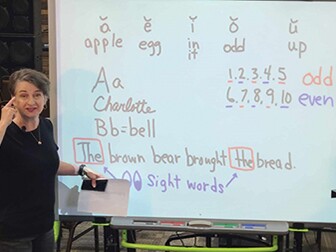 ă ĕ ĭ ŏ ŭ
apple egg in odd up
it
Aa 1,2,3,4,5 odd
Charlotte 6,7,8,9,10 even
Bb=bell
The brown bear brought the bread.
Sight words